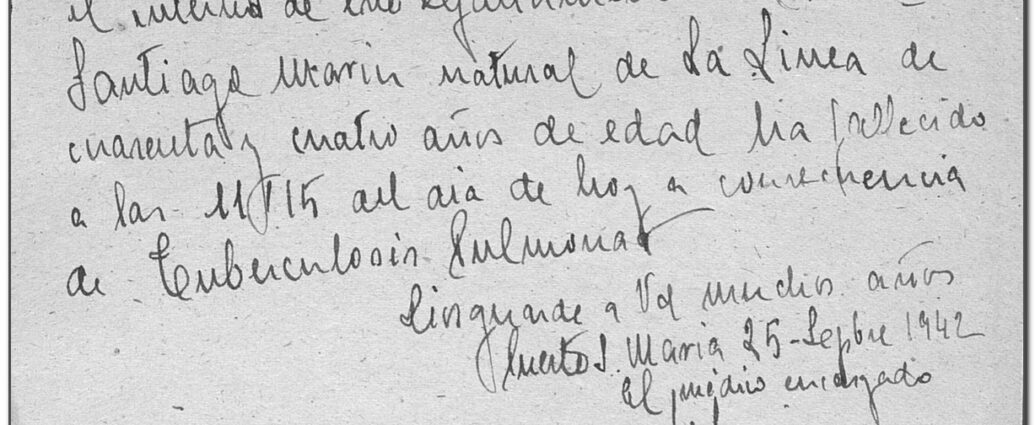 el interno de este
Santiago Marin natural de La Linea de
cuarenta y cuatro años de edad ha fallecido
a las 11 15 del dia de hoy a consecuencia
de Tuberculosis Pulmonar
Dios guarde a Vd muchos años
Puerto S. Maria 25-Sepbre 1942
El médico encargado